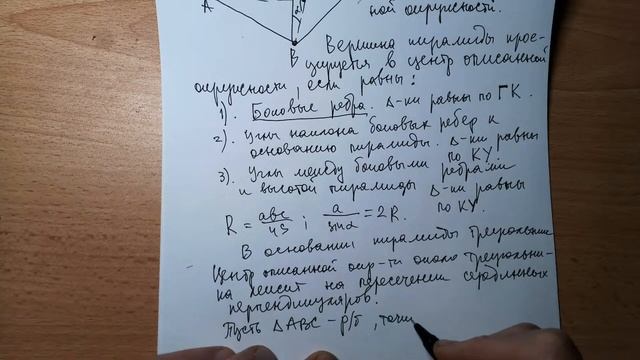 A
ной окружности.
B
Вершина пирамиды прое-
цируется в центр описанной
окружности, если равны:
1). Боковые ребра. Δ-ки равны по ГК.
2). Углы наклона боковых ребер к
основанию пирамиды. Δ-ки равны
по КУ
3). Углы между боковыми ребрами
и высотой пирамиды Δ-ки равны
по КУ.
R = abc/4S ; a/sinα = 2R.
В основании пирамиды треугольник
Центр описанной окр-ти около треугольни-
ка лежит на пересечении серединных
перпендикуляров.
Пусть ΔABC - р/б, точк